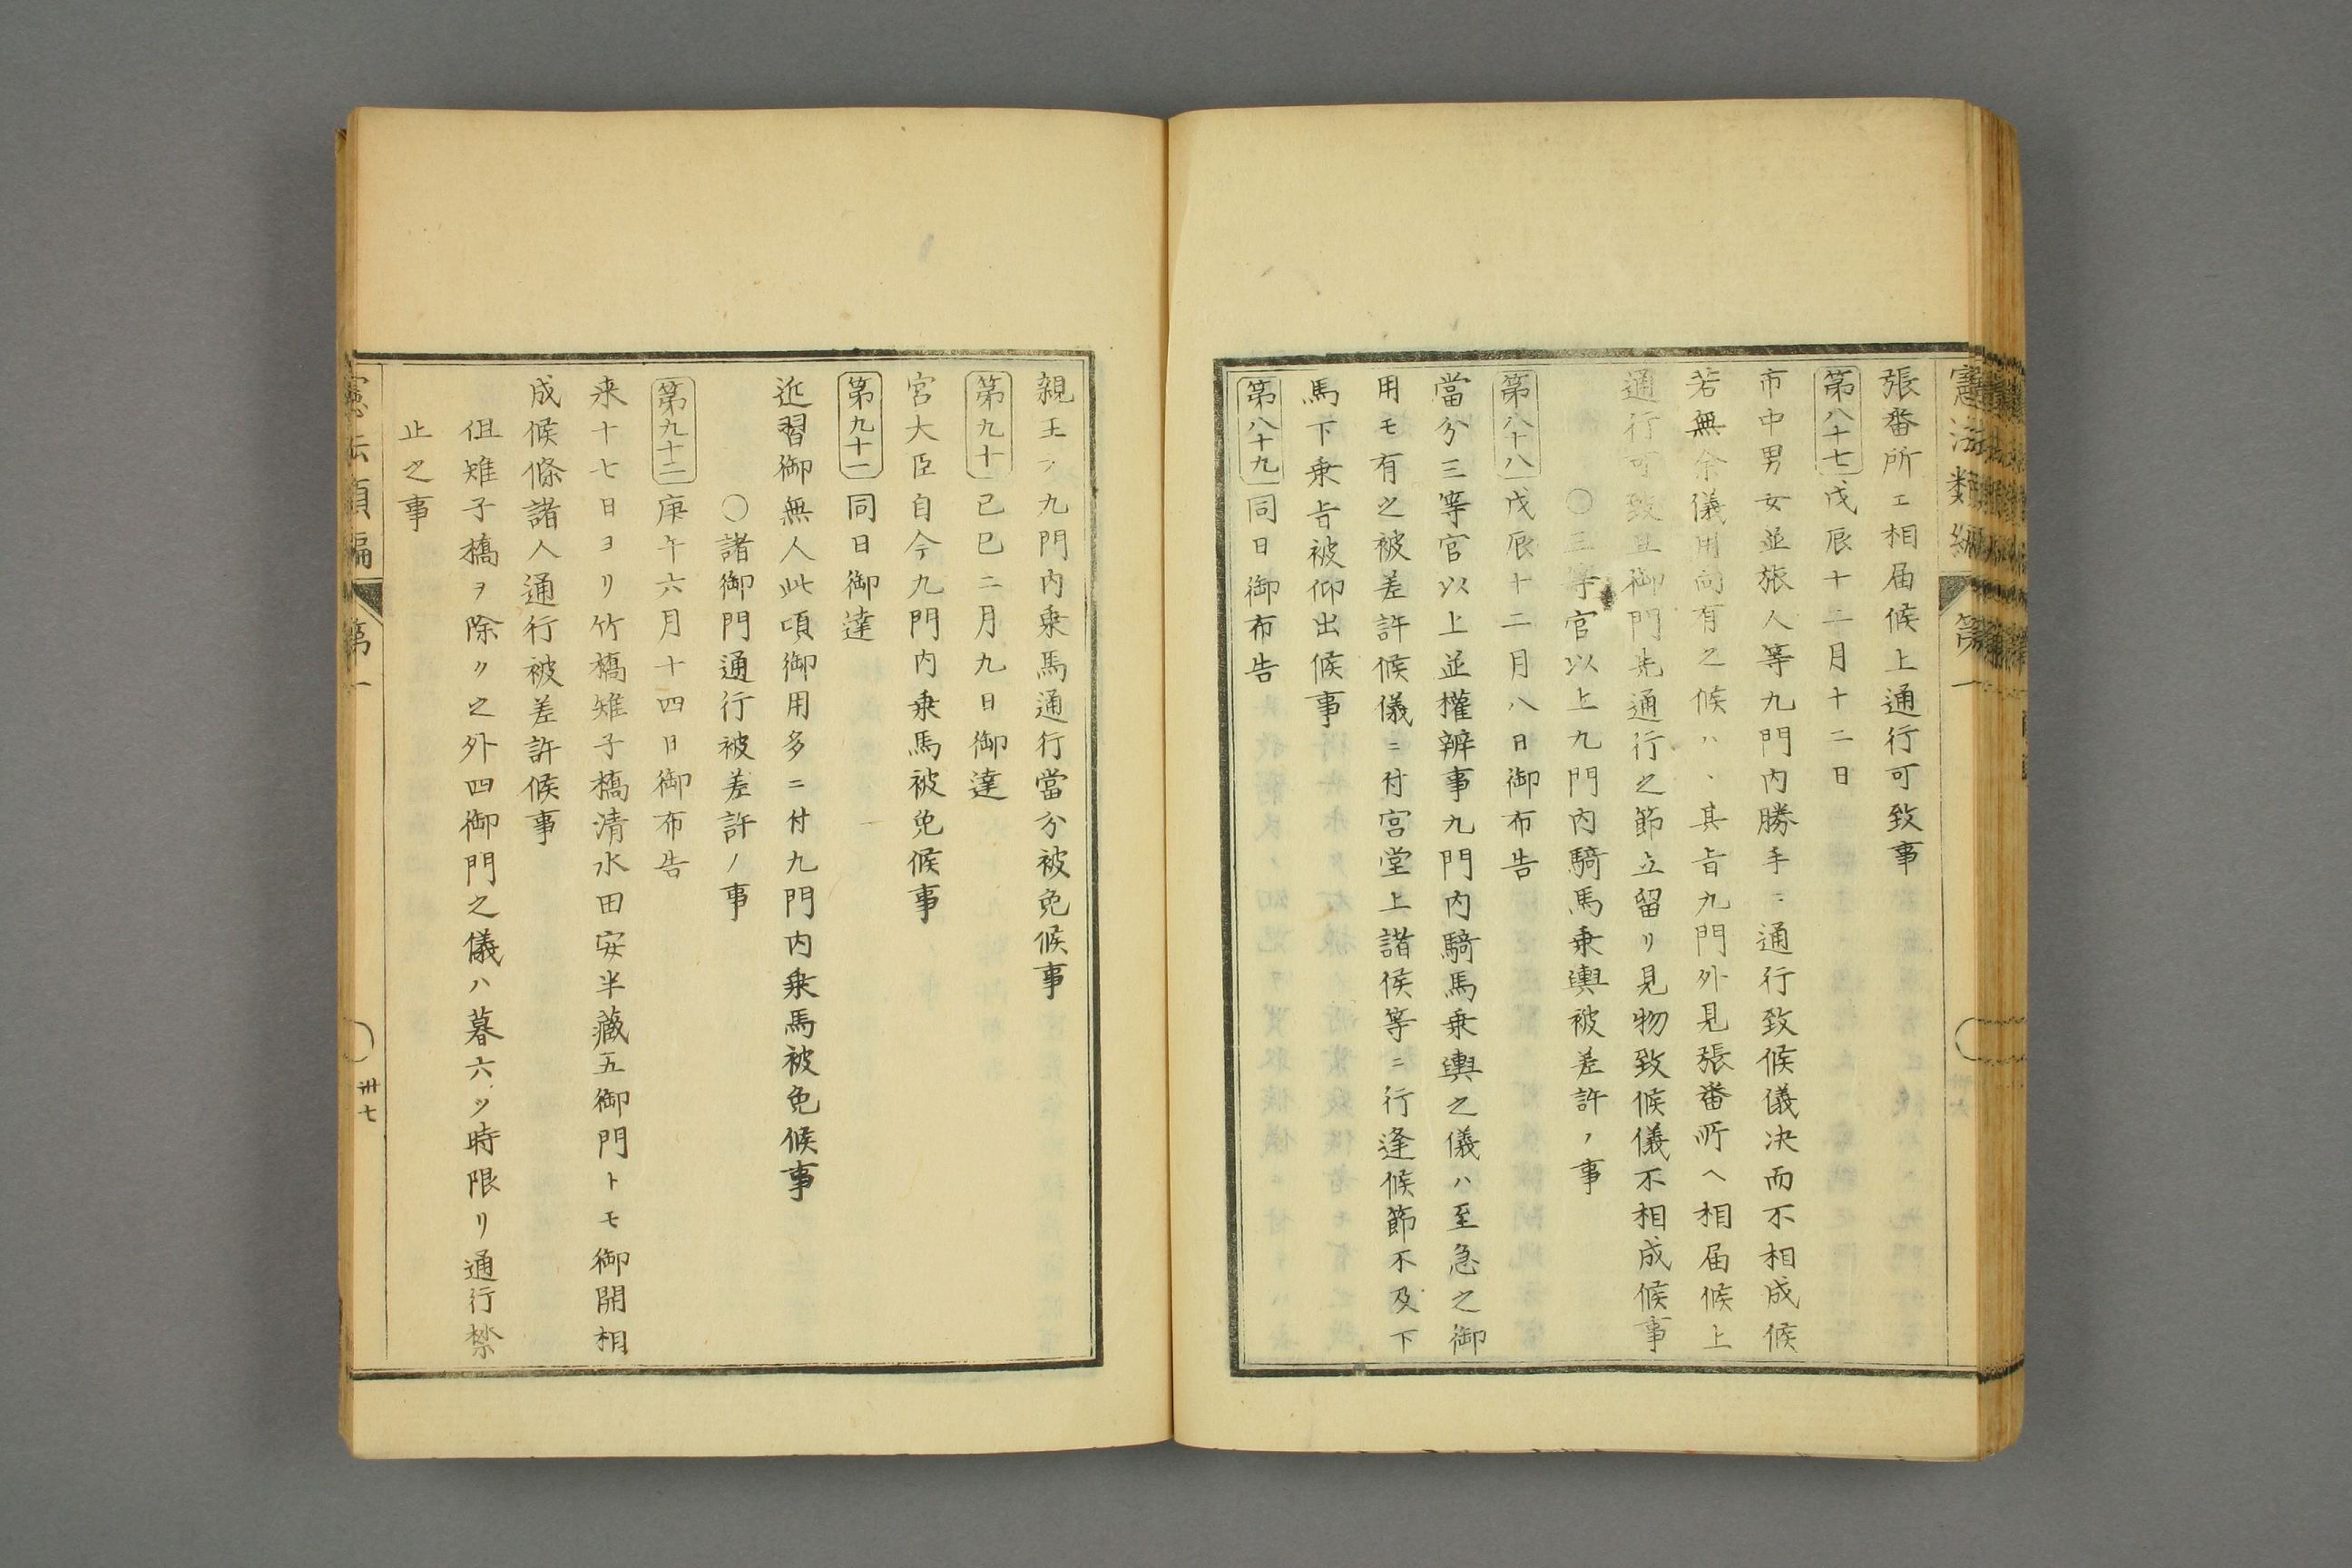 憲法類編 第一
張番所エ相届候上通行可致事
第八十七 戊辰十二月十二日
市中男女並旅人等九門内勝手ニ通行致候儀決而不相成候
若無余儀用向有之候ハヽ其旨九門外見張番所ヘ相届候上
通行可致且御門先通行之節立留リ見物致候儀不相成候事
〇三等官以上九門内騎馬乗輿被差許ノ事
第八十八 戊辰十二月八日御布告
當分三等官以上並權辨事九門内騎馬乗輿之儀ハ至急之御
用モ有之被差許候儀ニ付宮堂上諸侯等ニ行逢候節不及下
馬下乗旨被仰出候事
第八十九 同日御布告
親王ノ九門内乗馬通行當分被免候事
第九十 己巳二月九日御達
宮大臣自今九門内乗馬被免候事
第九十一 同日御達
近習御無人此頃御用多ニ付九門内乗馬被免候事
〇諸御門通行被差許ノ事
第九十二 庚午六月十四日御布告
来十七日ヨリ竹橋雉子橋清水田安半藏五御門トモ御開相
成候條諸人通行被差許候事
但雉子橋ヲ除ク之外四御門之儀ハ暮六ツ時限リ通行禁
止之事
憲法類編 第一
卅七